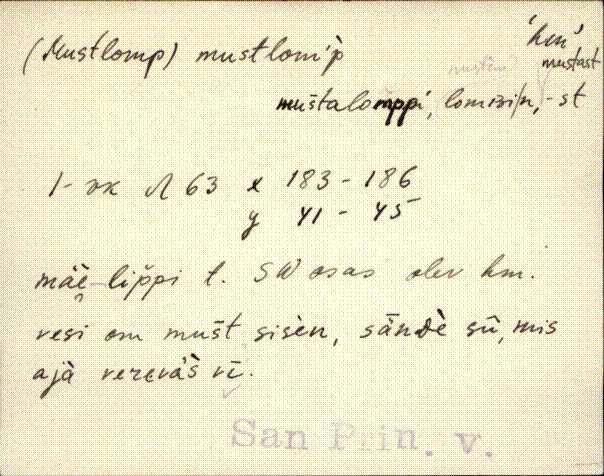 (Mustlomp) mustlom'p̀ 'hm'
mustast
muštalomppi, lomisin, - st
1- vk N 63 x 183 - 186
y 41 - 45
mäe̬ - lip̆pi t. SW osas olev hm.
vesi om mušt sisèn, sändè sū, mis
ajà verevä's vī.
San Prin. v.